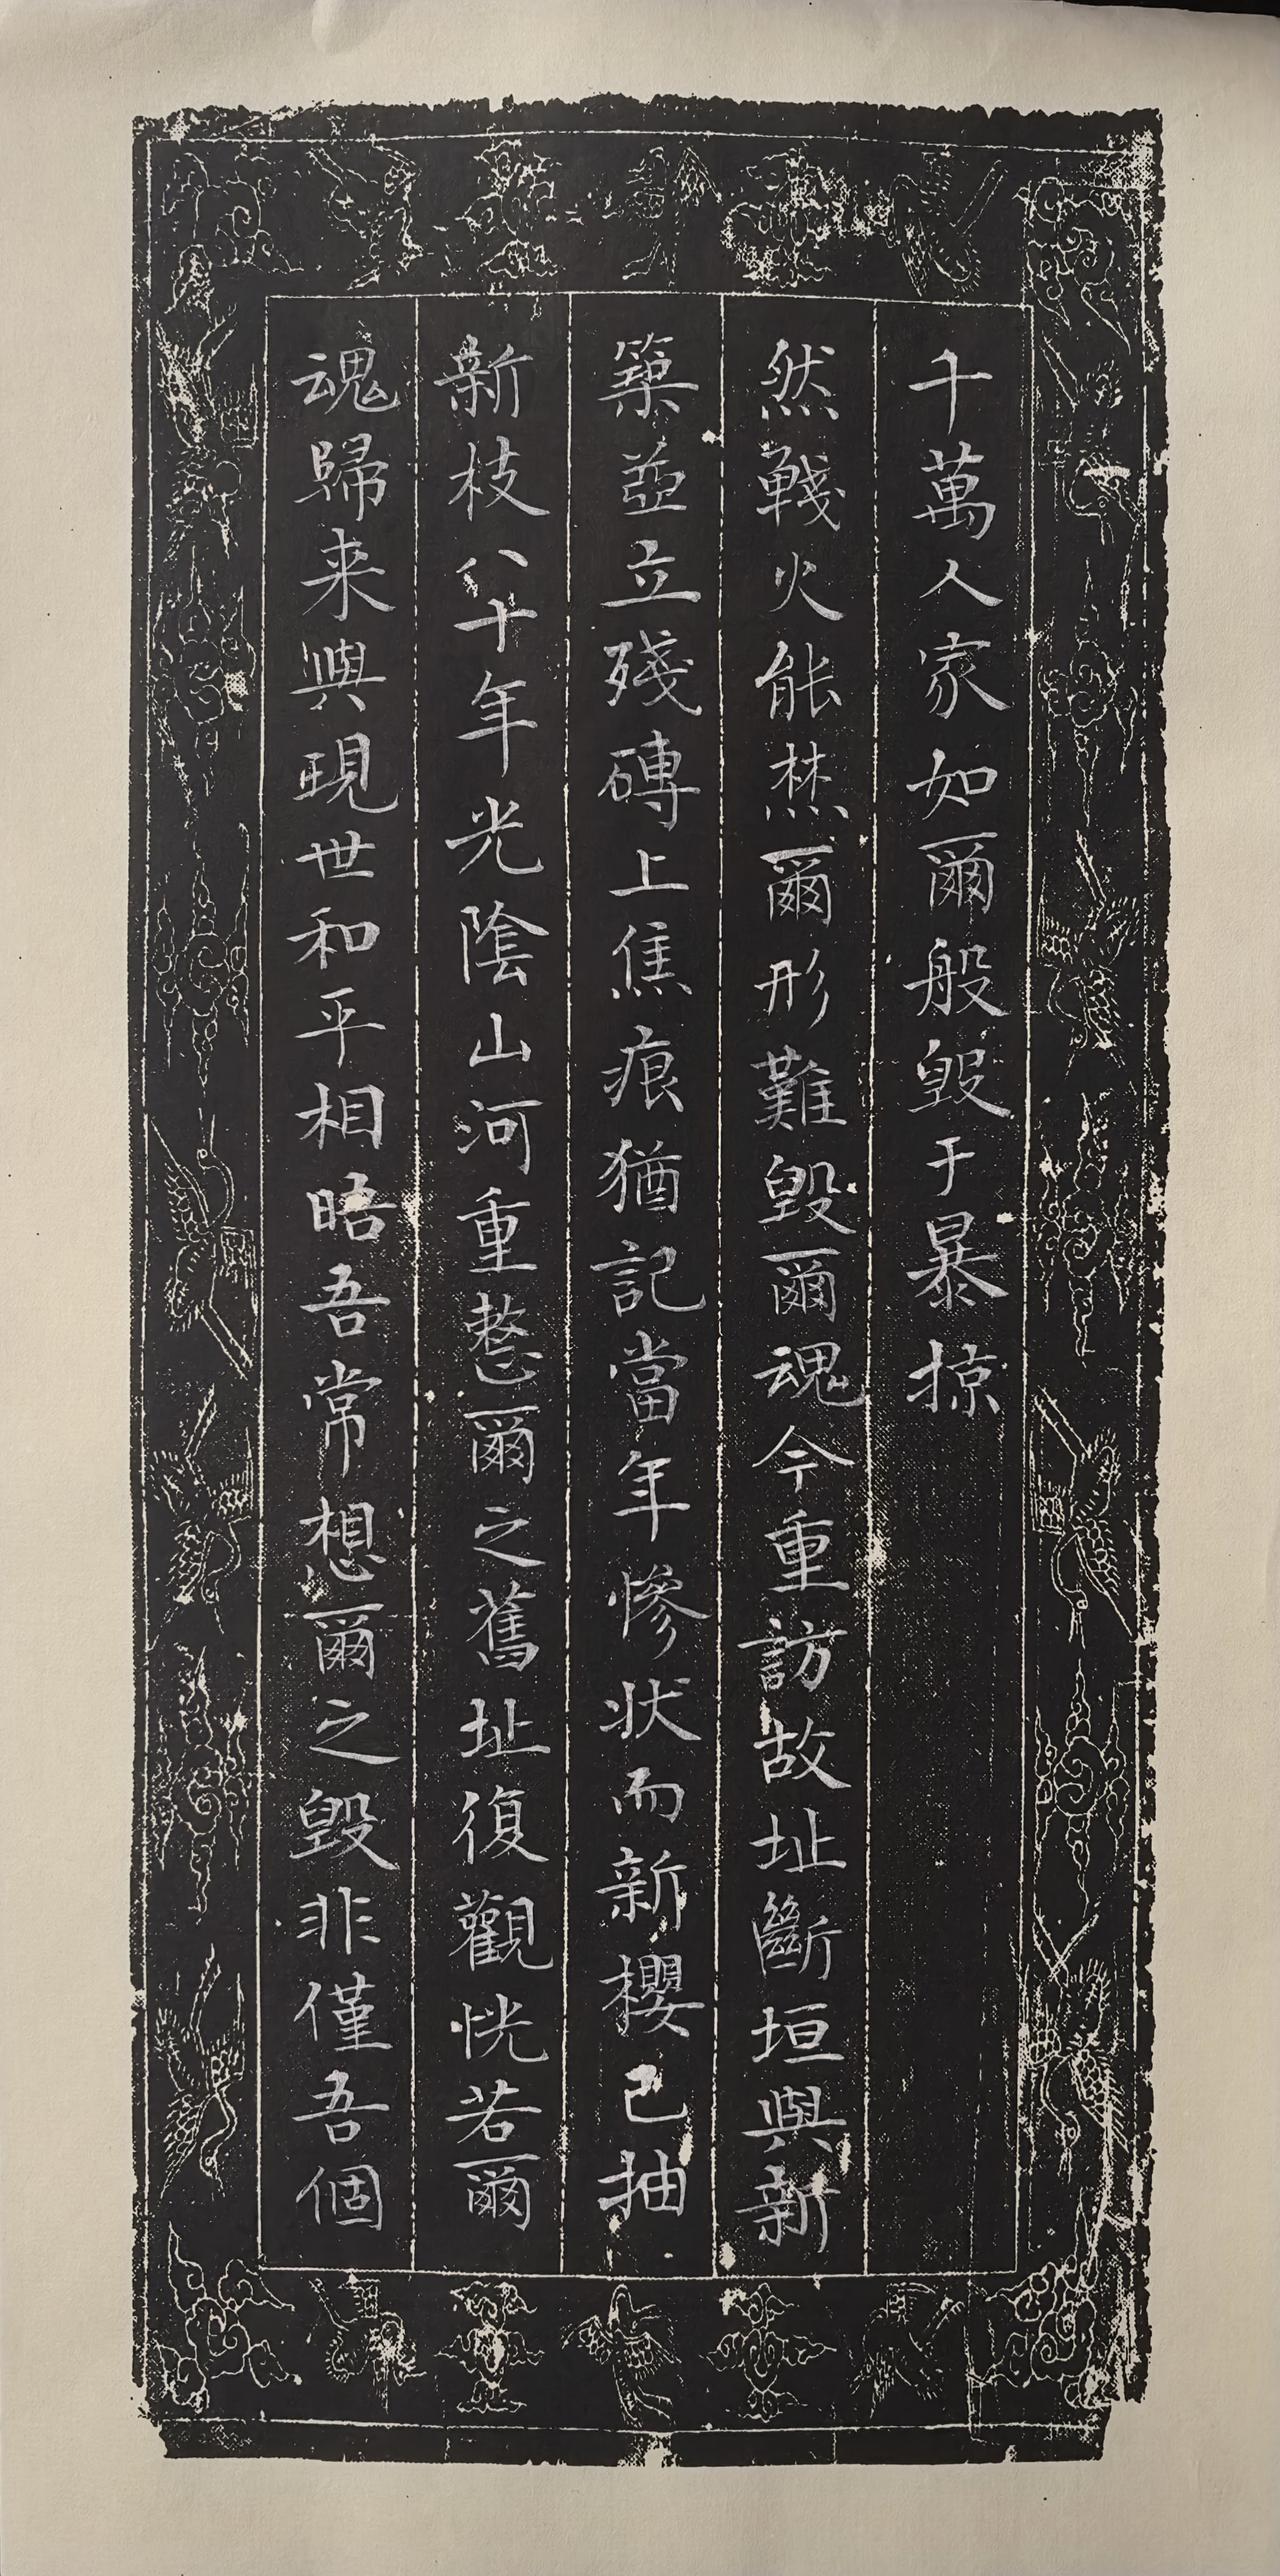 千萬人家如爾般毀于暴掠
然戰火能焚爾形難毀爾魂今重訪故址斷垣與新
築並立殘磚上焦痕猶記當年慘状而新櫻已抽
新枝八十年光陰山河重整爾之舊址復觀恍若爾
魂歸来與現世和平相晤吾常想爾之毀非僅吾個